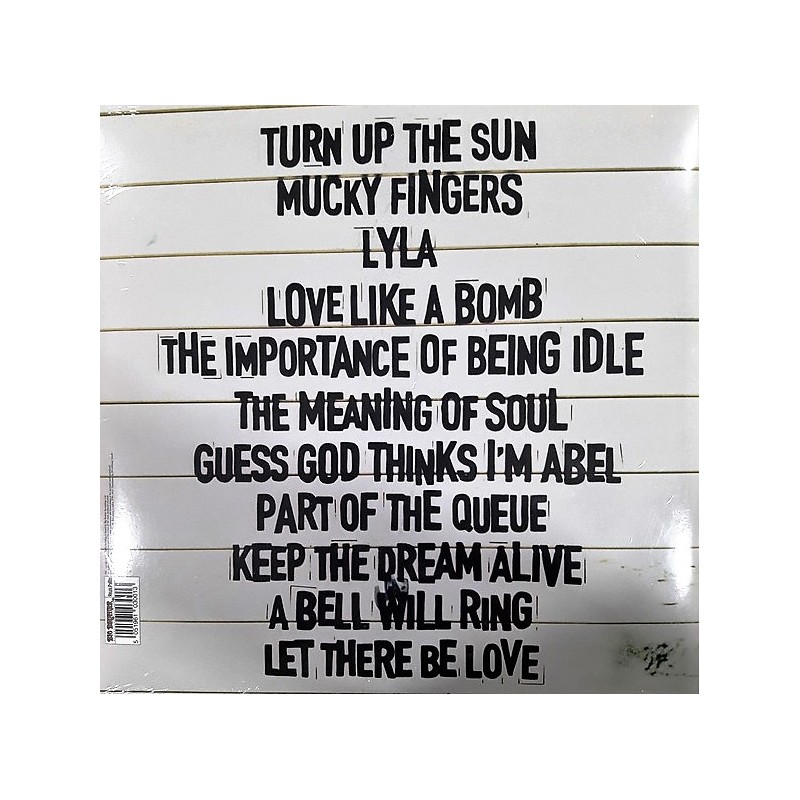 TURN UP THE SUN
MUCKY FINGERS
LYLA
LOVE LIKE A BOMB
THE IMPORTANCE OF BEING IDLE
THE MEANING OF SOUL
GUESS GOD THINKS I'M ABEL
PART OF THE QUEUE
KEEP THE DREAM ALIVE
A BELL WILL RING
LET THERE BE LOVE